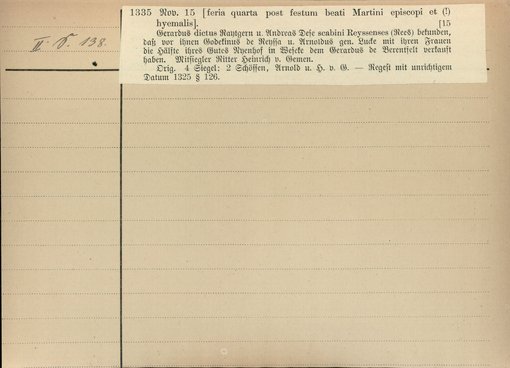 II. S. 138.
1335 Nov. 15 [feria quarta post festum beati Martini episcopi et (!)
hyemalis]. [15
Gerardus dictus Raytgern u. Andreas Dese scabini Reyssenses (Rees) bekunden,
daß vor ihnen Godekinus de Reyssa u. Arnoldus gen. Lucke mit ihren Frauen
die Hälfte ihres Gutes Nyenhof in Wescke dem Gerardus de Berentfelt verkauft
haben. Mitsiegler Ritter Heinrich v. Gemen.
Orig. 4 Siegel: 2 Schöffen, Arnold u. H. v. G. — Regest mit unrichtigem
Datum 1325 § 126.